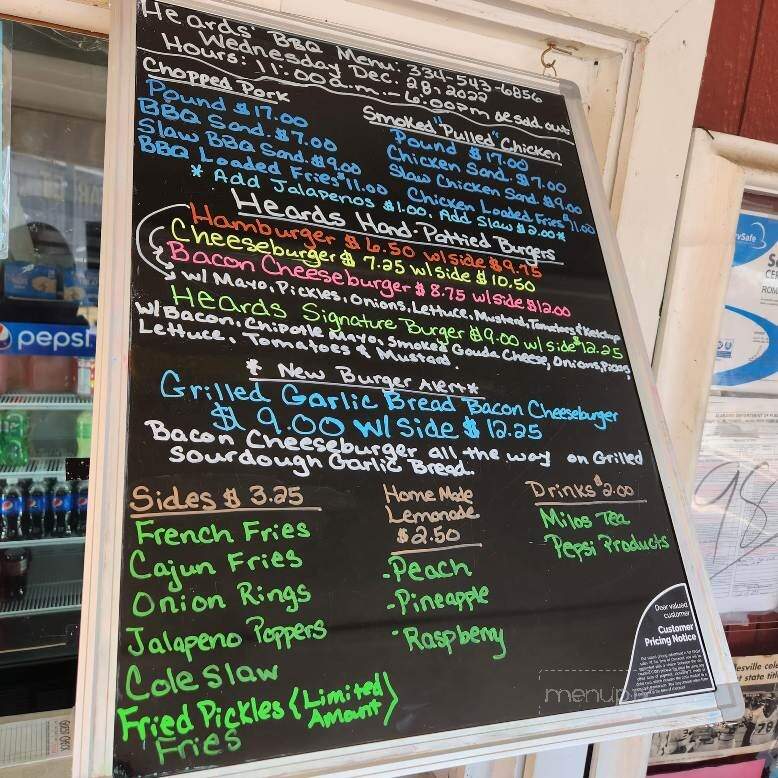 Heards' BBQ Menu: 334-543-6856
Wednesday Dec. 28, 2022
Hours: 11:00a.m.-6:00pm or sold out
Chopped Pork
Pound $17.00
BBQ Sand. $7.00
Slaw BBQ Sand. $9.00
BBQ Loaded Fries $11.00
Smoked "Pulled" Chicken
Pound $17.00
Chicken Sand. $7.00
Slaw Chicken Sand. $9.00
Chicken Loaded Fries $11.00
* Add Jalapenos $1.00. Add Slaw $2.00*
Heards Hand-Pattied Burgers
Hamburger $6.50 w/side $9.75
Cheeseburger $7.25 w/side $10.50
Bacon Cheeseburger $8.75 w/side $12.00
w/Mayo, Pickles, Onions, Lettuce, Mustard, Tomatoes & Ketchup
Heards Signature Burger $9.00 w/side $12.25
w/Bacon, Chipotle Mayo, Smoked Gouda Cheese, Onions,
Lettuce, Tomatoes & Mustard.
* New Burger Alert*
Grilled Garlic Bread Bacon Cheeseburger
$9.00 w/Side $12.25
Bacon Cheeseburger all the way on Grilled
Sourdough Garlic Bread.
Sides $3.25
French Fries
Cajun Fries
Onion Rings
Jalapeno Poppers
Cole Slaw
Fried Pickles {Limited
Amount}
Fries
Home Made
Lemonade
$2.50
-Peach
-Pineapple
-Raspberry
Drinks $2.00
Milos Tea
Pepsi Products
Dear valued
customer
Customer
Pricing Notice
pepsi
98